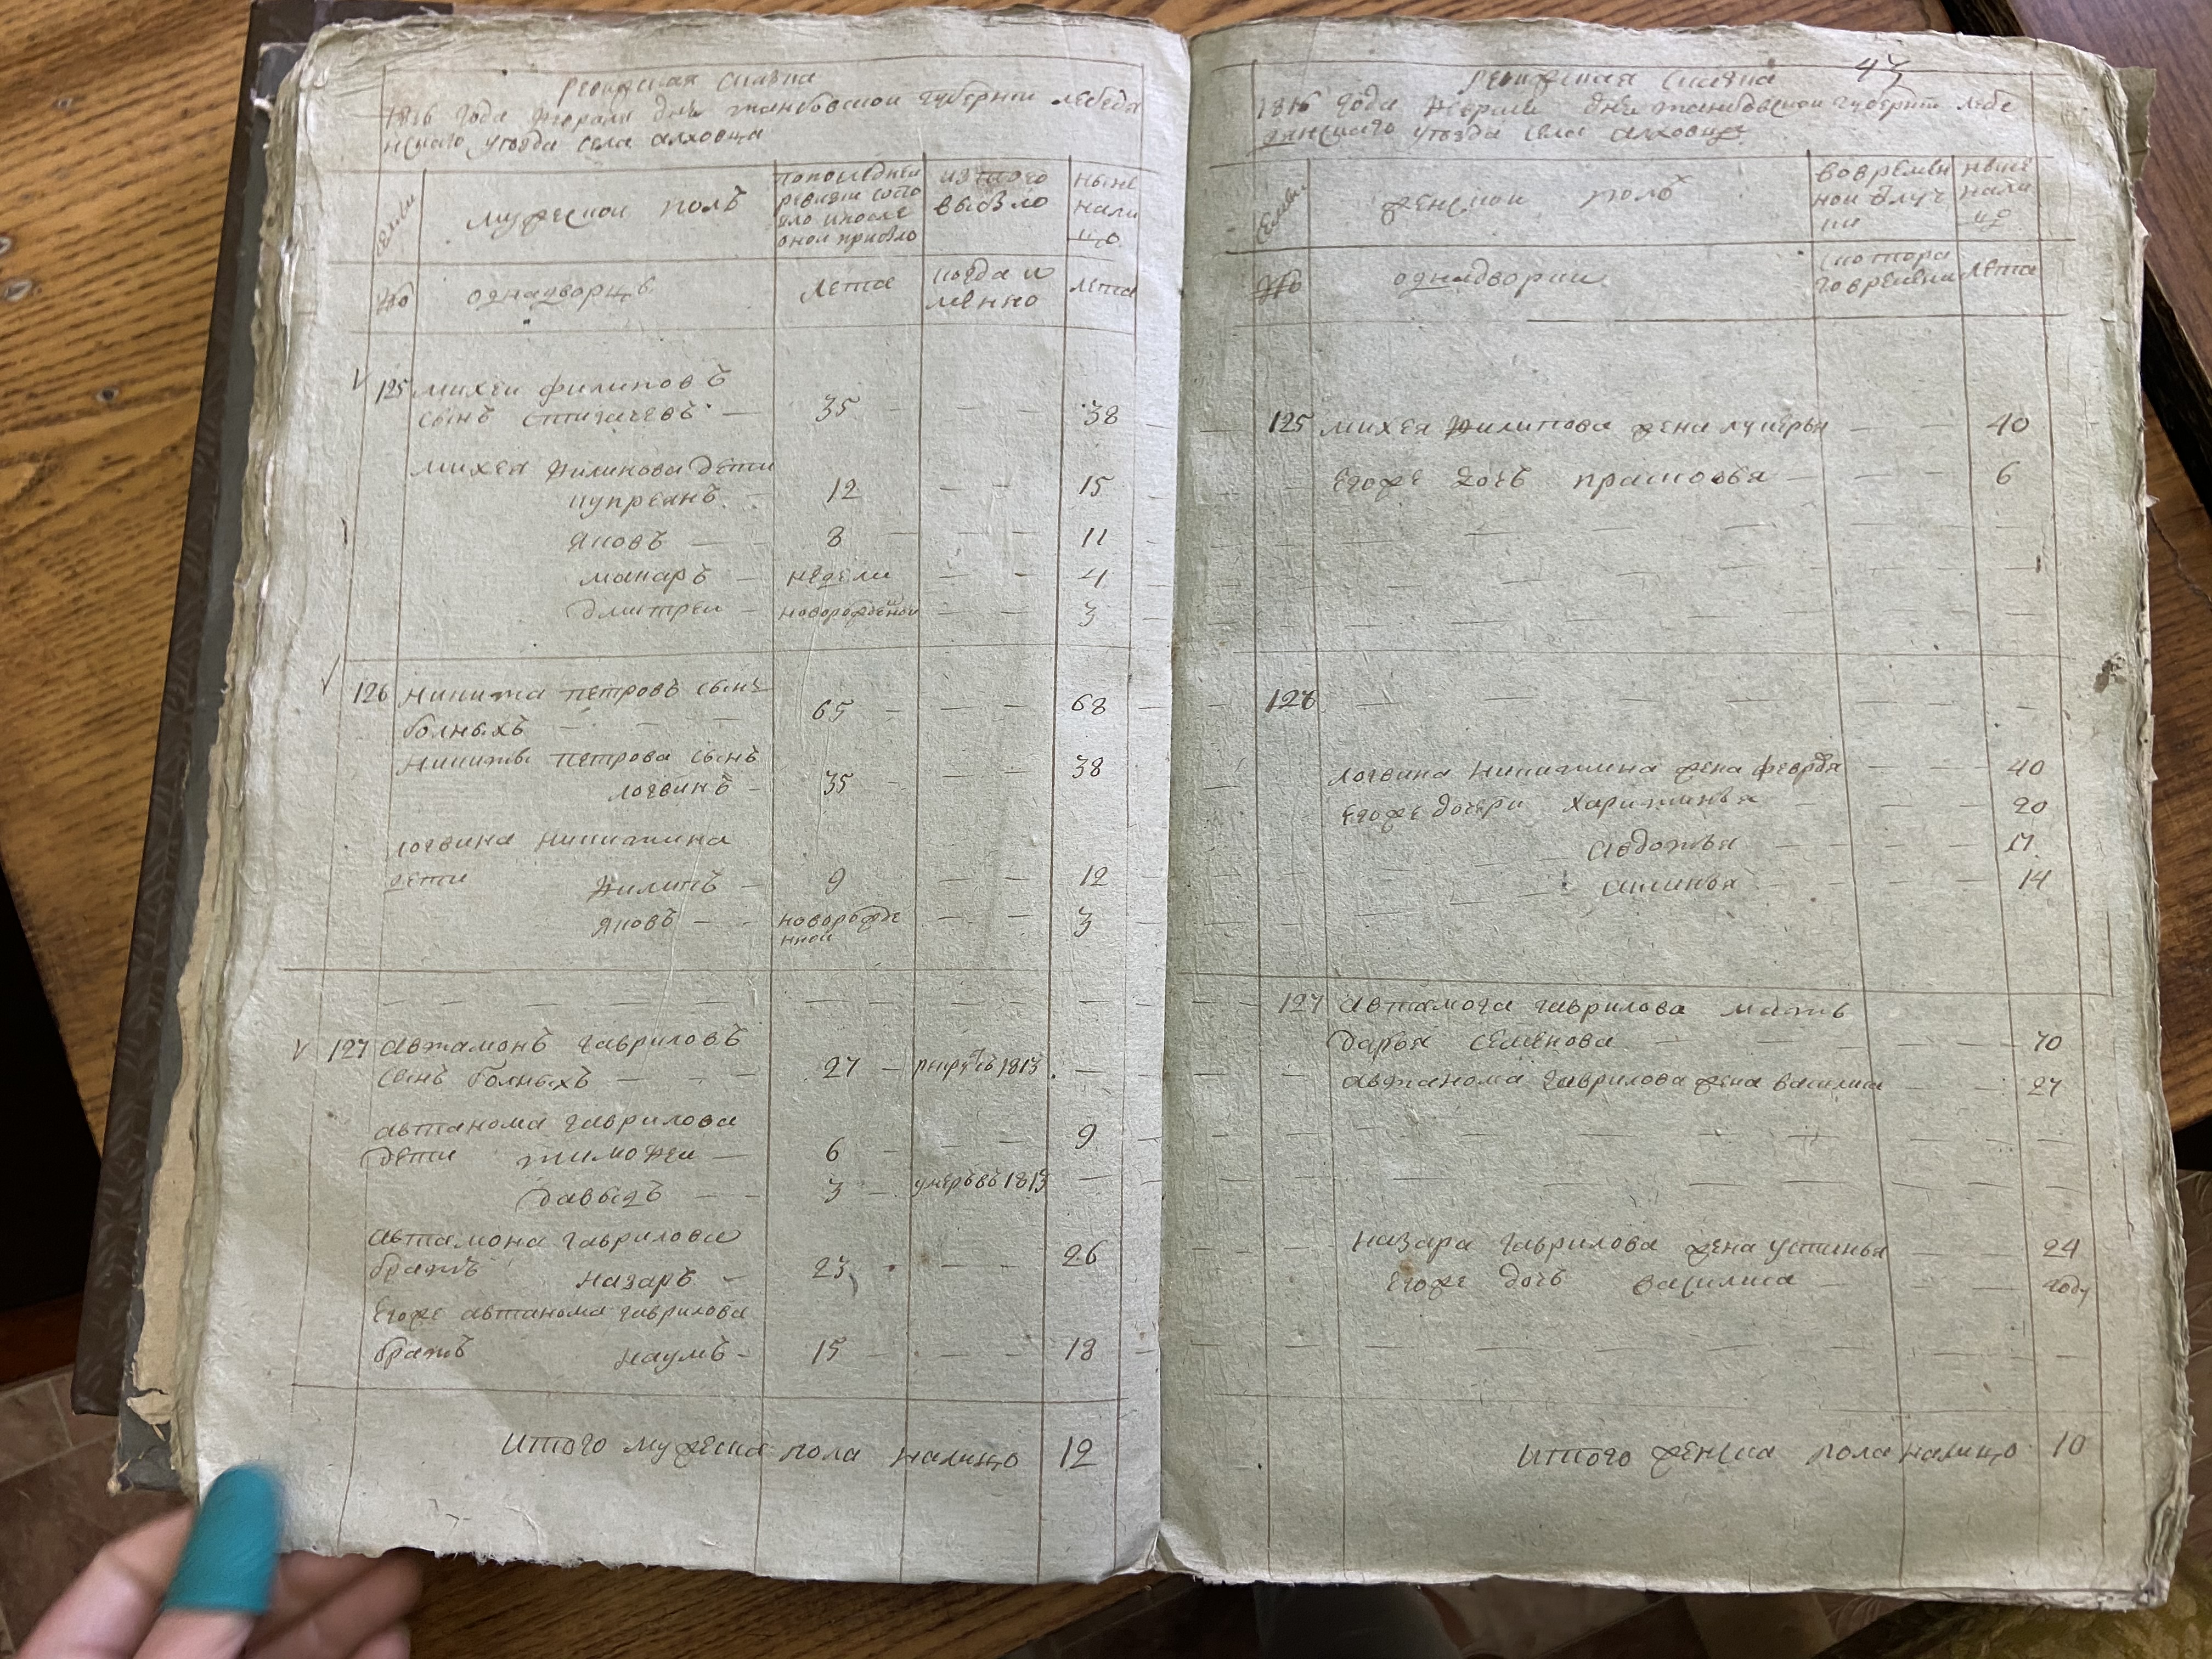 Ревижская сказка
1816 года февраля дня танбовской губернии лебедя
нскаго уезда села алховца
семьи
мужескои полъ
попоследнеи
ревизи состо
яло ипосле
оной прибыло
изтого
выбыло
ныне
нали
цо
№
однадворцъ
лета
когда и
менно
лета
125 михеи филиповъ
сынъ стигачевъ — 35 — — 38
михея филипова дети
купреанъ — 12 — — 15
яковъ — — 8 — — 11
макаръ — недели — — 4
дмитреи — новорожденои — — 3
126 никита петровъ сынъ
болныхъ — — — 65 — — 68
никиты петрова сынъ
логвинъ — 35 — — 38
логвина никитина
дети филипъ — 9 — — 12
яковъ — — новорожде
нной — — 3
127 автамонъ гавриловъ
сынъ болныхъ — — — 27 — рекрутъ 1813 — —
автанома гаврилова
дети тимофеи — 6 — — 9
давыдъ — — 3 — умеръ въ 1813 — —
автамона гаврилова
братъ назаръ — 23 — — 26
Егоже автанома гаврилова
братъ наумъ — 15 — — 18
Итого мужеска пола налицо 12
47
Ревижская сказка
1816 года февраля дня танбовской губернии лебе
дянскаго уезда села алховца
семьи
женскои полъ
вовремен
нои отлуч
ки
ныне
нали
цо
№
однадворки
скотора
говремени
лета
125 михея филипова жена лукерья — — 40
Егоже дочь прасковья — — 6
126
логвина никитина жена феврония — — 40
Егоже дочери харитинья — — 20
авдотья — — 17
акинья — — 14
127 автамона гаврилова мать
дарья семенова — — 70
автанома гаврилова жена василиса — — 27
назара гаврилова жена устинья — — 24
Егоже дочь василиса — — году
Итого женска пола налицо 10